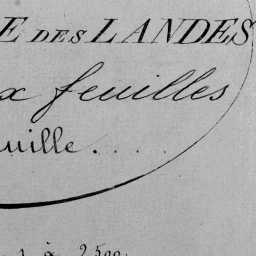 E DES LANDES
x feuilles
uille. . . .
à 2500.